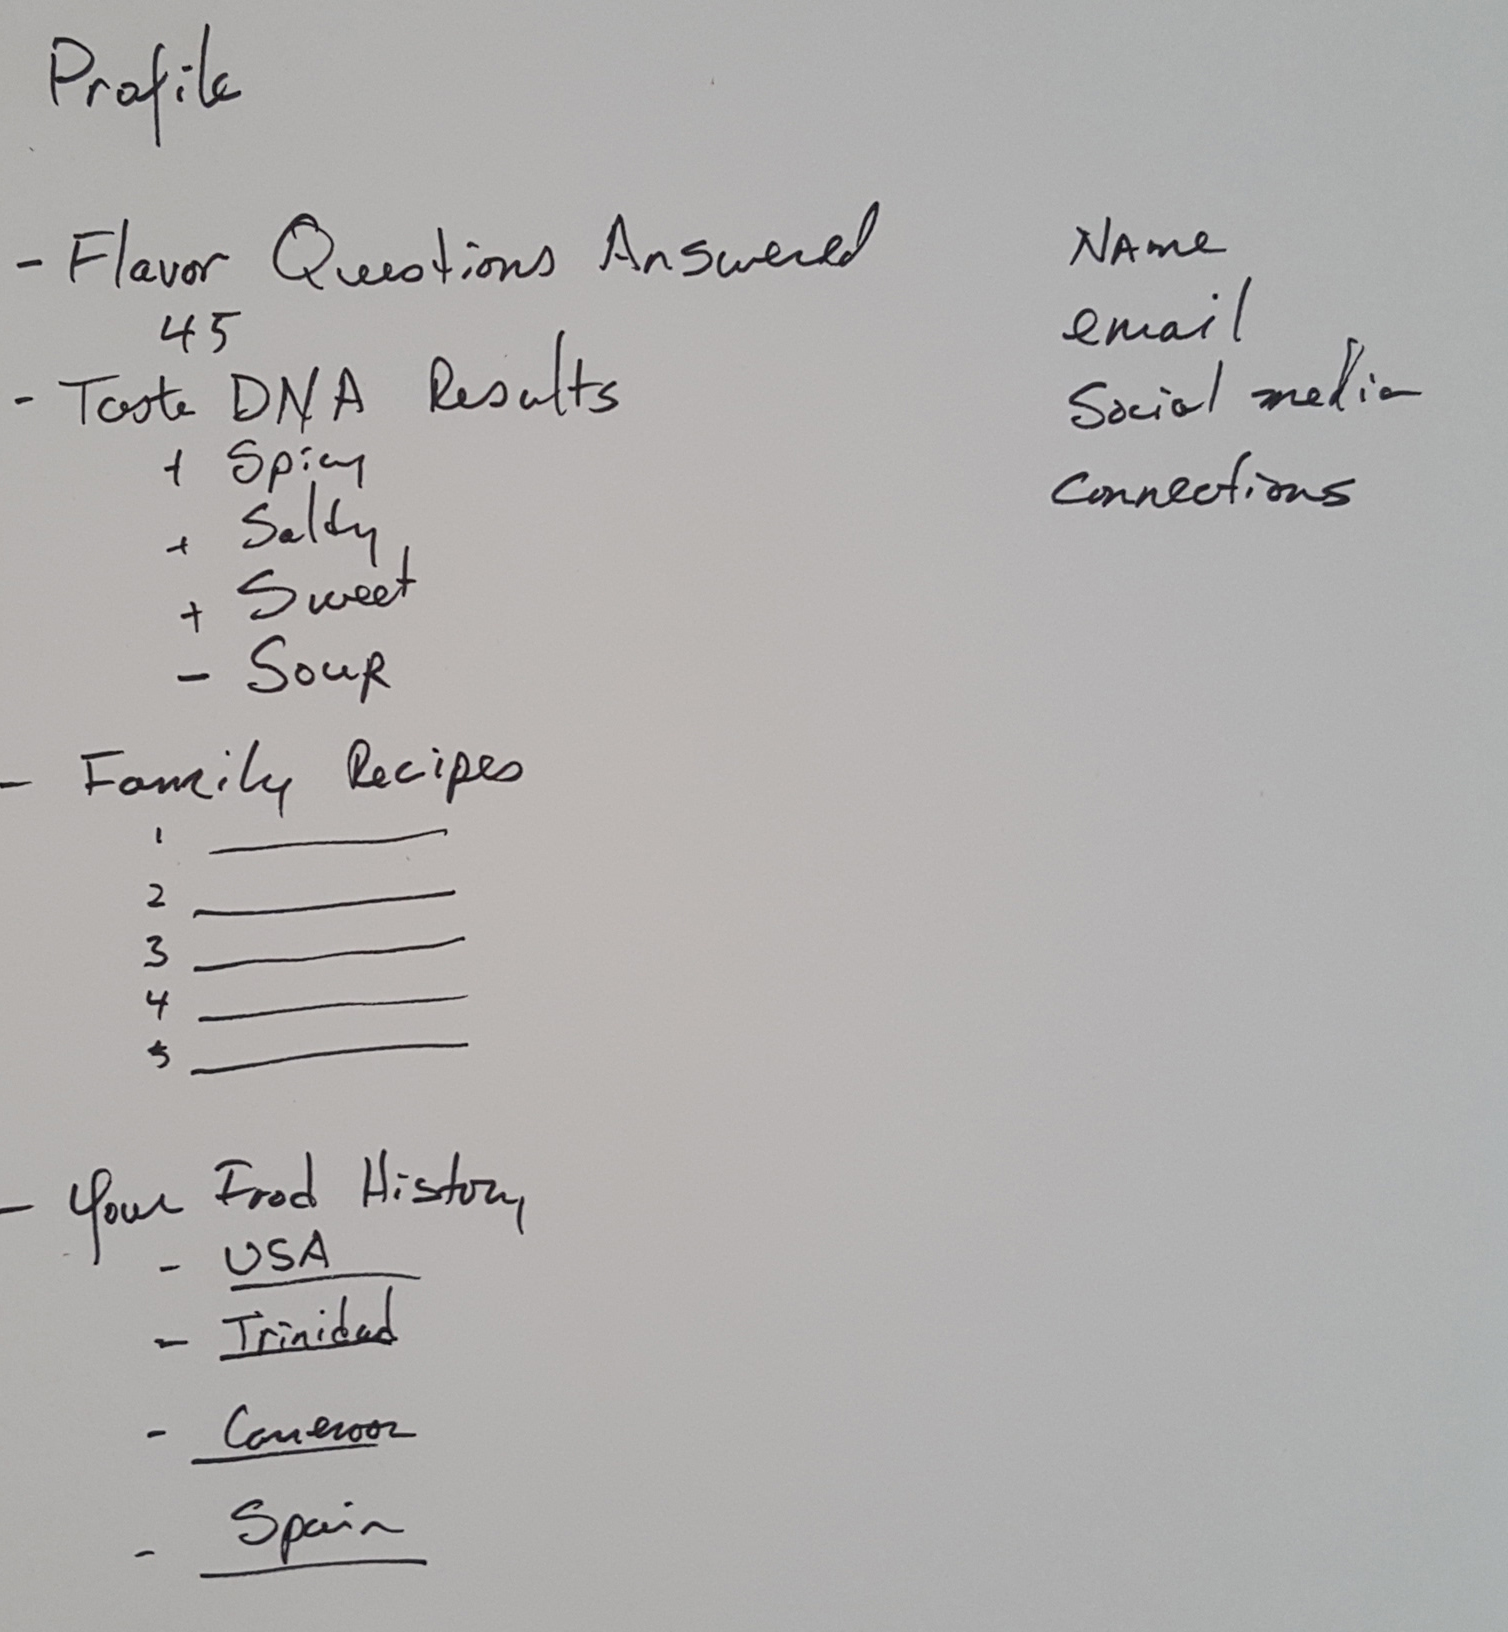 Profile
- Flavor Questions Answered
45
- Taste DNA Results
+ Spicy
+ Salty
+ Sweet
- Sour
- Family Recipes
1
2
3
4
5
- Your Food History
- USA
- Trinidad
- Cameroon
- Spain
Name
email
Social media
Connections